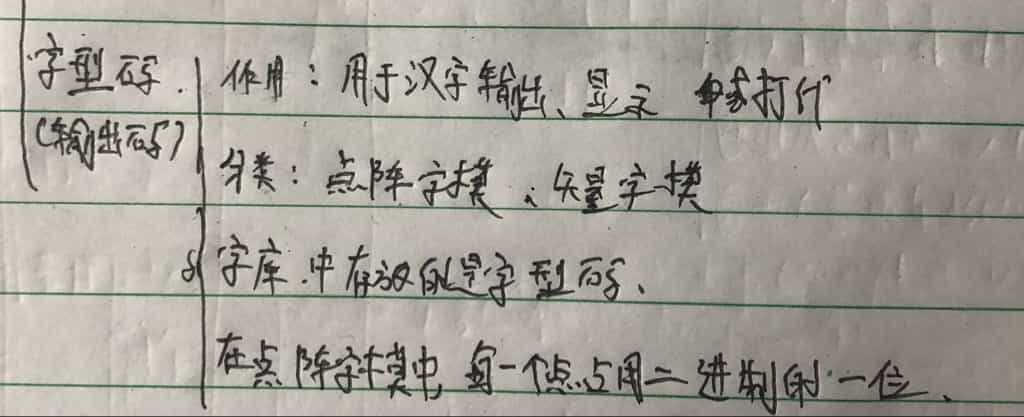 字型码. 作用：用于汉字输出、显示 打印
(输出码)
分类：点阵字模、矢量字模
字库.中存放的是字型码、
在点阵字模中,每一个点占用二进制的一位、